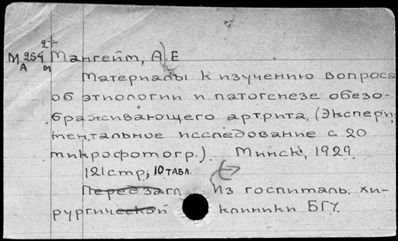 27
М 254 Мангейм, А.Е
А м
Материалы к изучению вопроса
об этиологии и патогенезе обезо-
браживающего артрита. (Экспери
ментальное исследование с 20
микрофотогр.). Минск, 1929.
121стр; 10 ТАБЛ.
Перед загл Из госпиталь. хи-
рургической клиники БГУ.